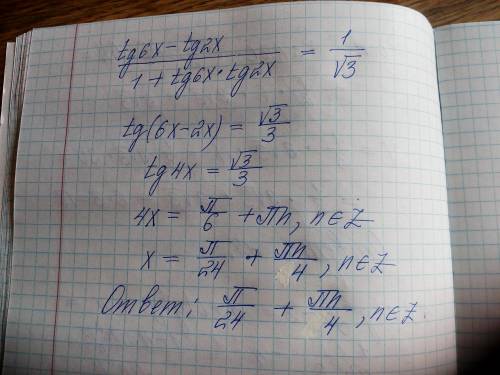 (tg6x - tg2x)/(1 + tg6x · tg2x) = 1/√3
tg(6x-2x) = √3/3
tg4x = √3/3
4x = π/6 + πn, n∈Z
x = π/24 + πn/4, n∈Z
Ответ: π/24 + πn/4, n∈Z.